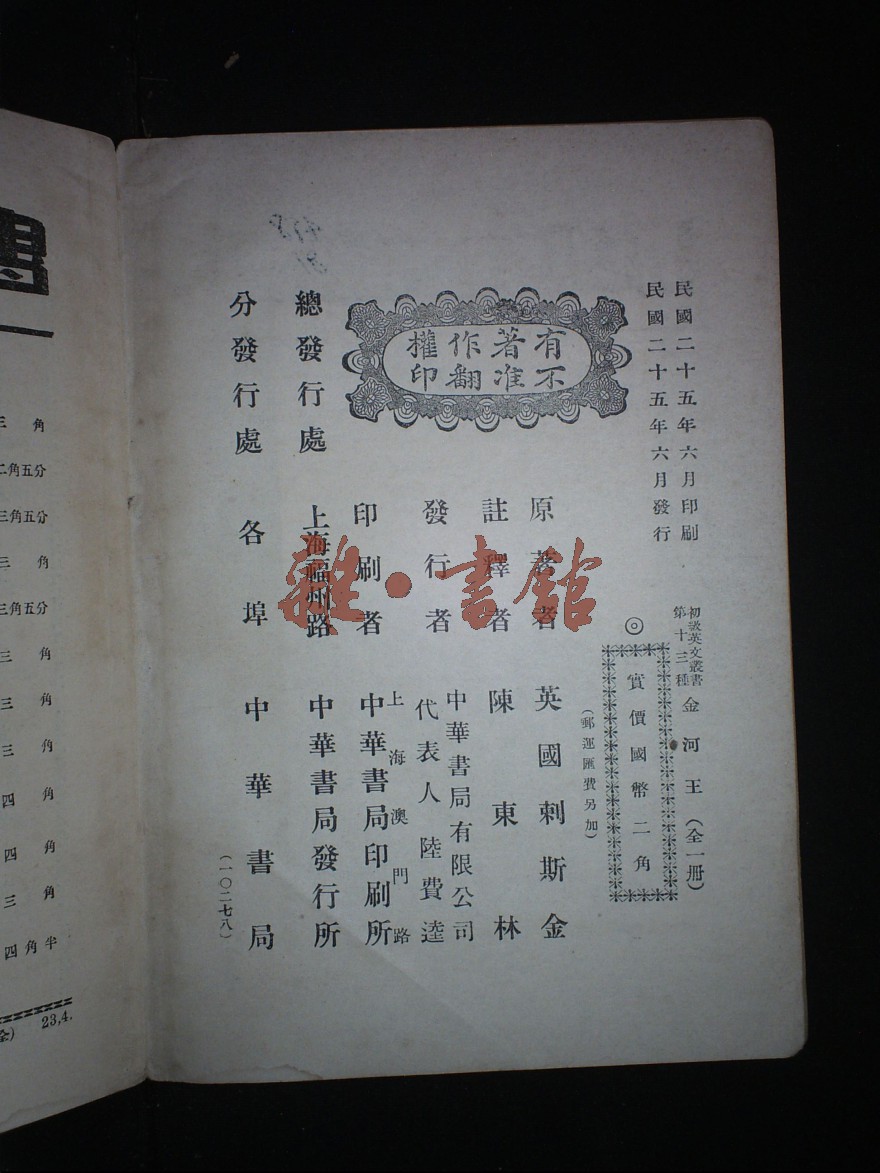 民國二十五年六月印刷
民國二十五年六月發行
初級英文叢書
第十三種
金河王（全一冊）
◎
實價國幣二角
（郵運匯費另加）
有著作權
不准翻印
原著者 英國刺斯金
註釋者 陳東林
發行者 中華書局有限公司
代表人 陸費逵
印刷者 上海澳門路
中華書局印刷所
總發行處 上海福州路 中華書局發行所
分發行處 各埠 中華書局
（一〇二七八）
雜·書館
書
三角
二角五分
三角五分
三角
三角五分
三角
三角
三角
四角
四角
三角
四角半
全) 23,4.